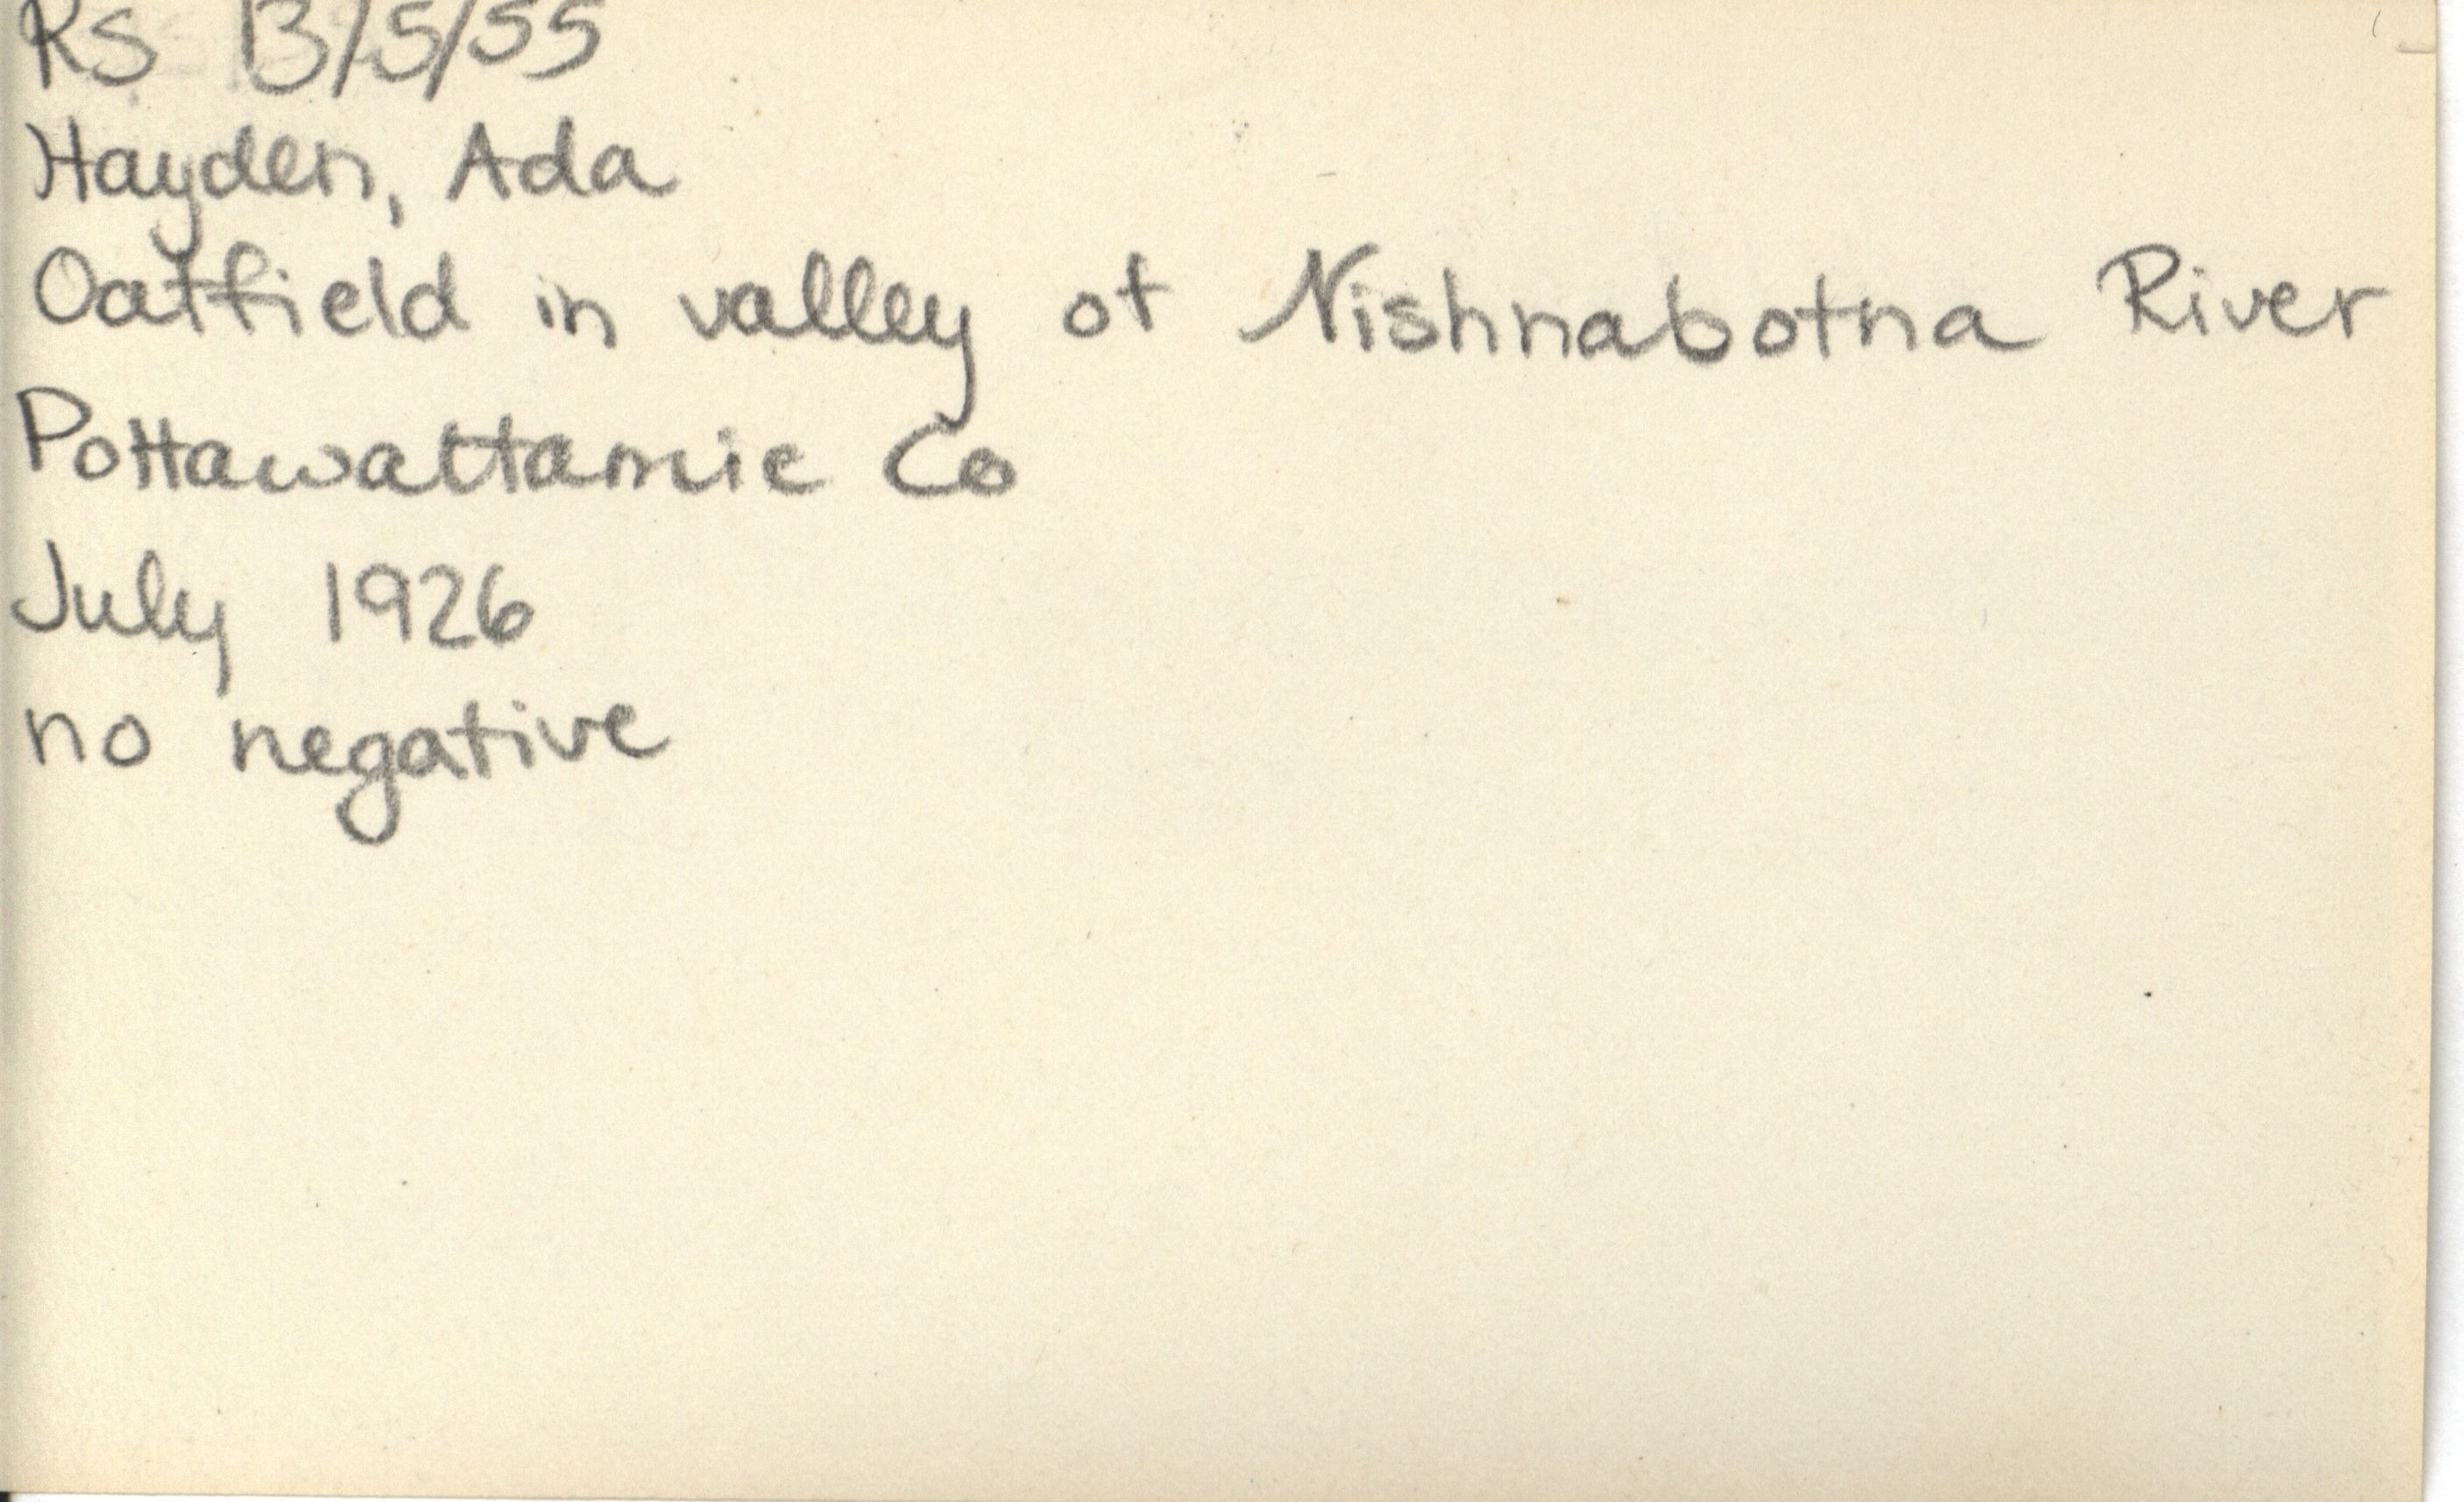 RS 13/5/55
Hayden, Ada
Oatfield in valley of Nishnabotna River
Pottawattamie Co
July 1926
no negative